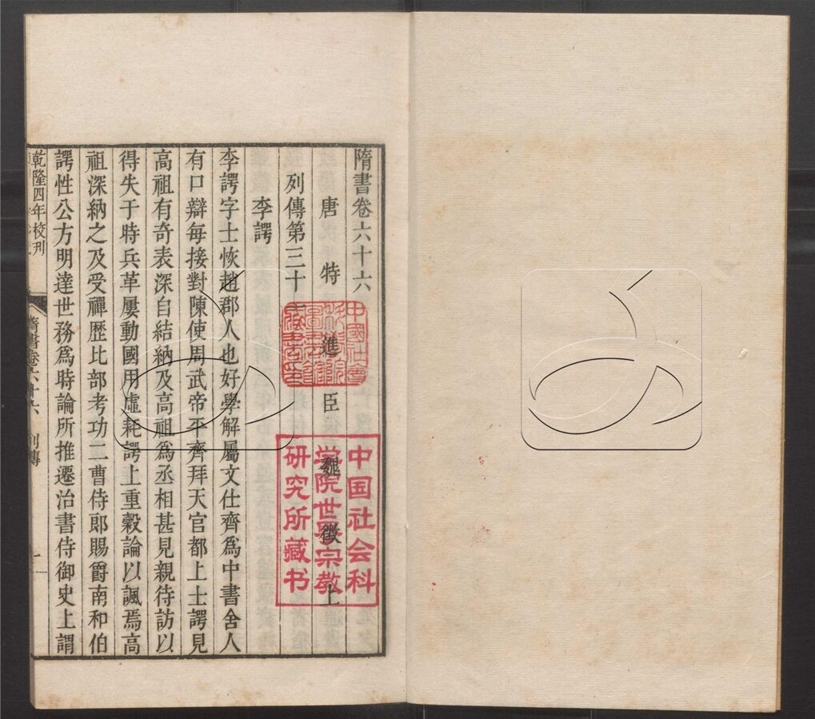 隋書卷六十六
唐特進臣魏徵上
列傳第三十一
李諤
李諤字士恢趙郡人也好學解屬文仕齊為中書舍人
有口辯每接對陳使周武帝平齊拜天官都上士諤見
高祖有奇表深自結納及高祖為丞相甚見親待訪以
得失于時兵革屢動國用虛耗諤上重穀論以諷焉高
祖深納之及受禪歷比部考功二曹侍郎賜爵南和伯
諤性公方明達世務為時論所推遷治書侍御史上謂
乾隆四年校刊
隋書卷六十六 列傳
一
中国社会科
学院世界宗教
研究所藏书